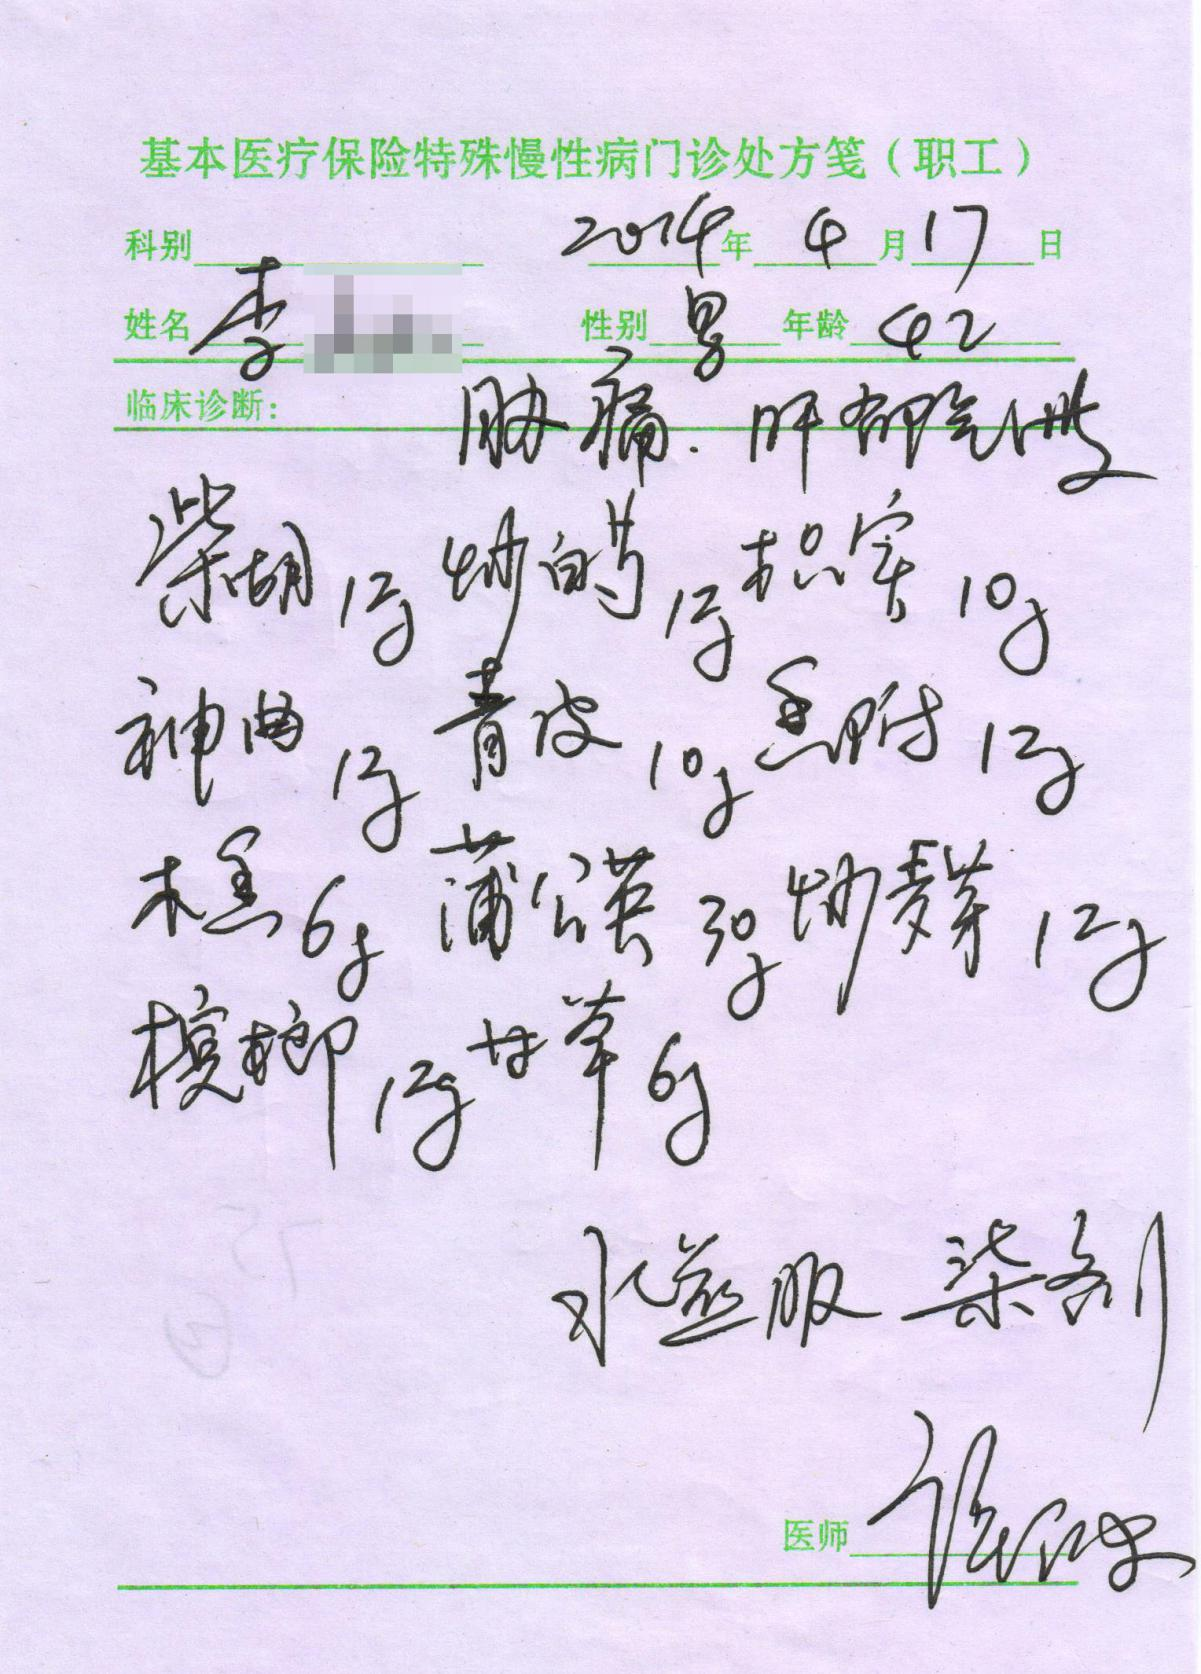 基本医疗保险特殊慢性病门诊处方笺（职工）
科别 2014年4月17日
姓名 李 性别 男 年龄 42
临床诊断： 胁痛. 肝郁气滞
柴胡12g 炒白芍12g 枳实10g
神曲12g 青皮10g 香附12g
木香6g 蒲公英30g 炒麦芽12g
槟榔12g 甘草6g
水煎服 柒剂
医师